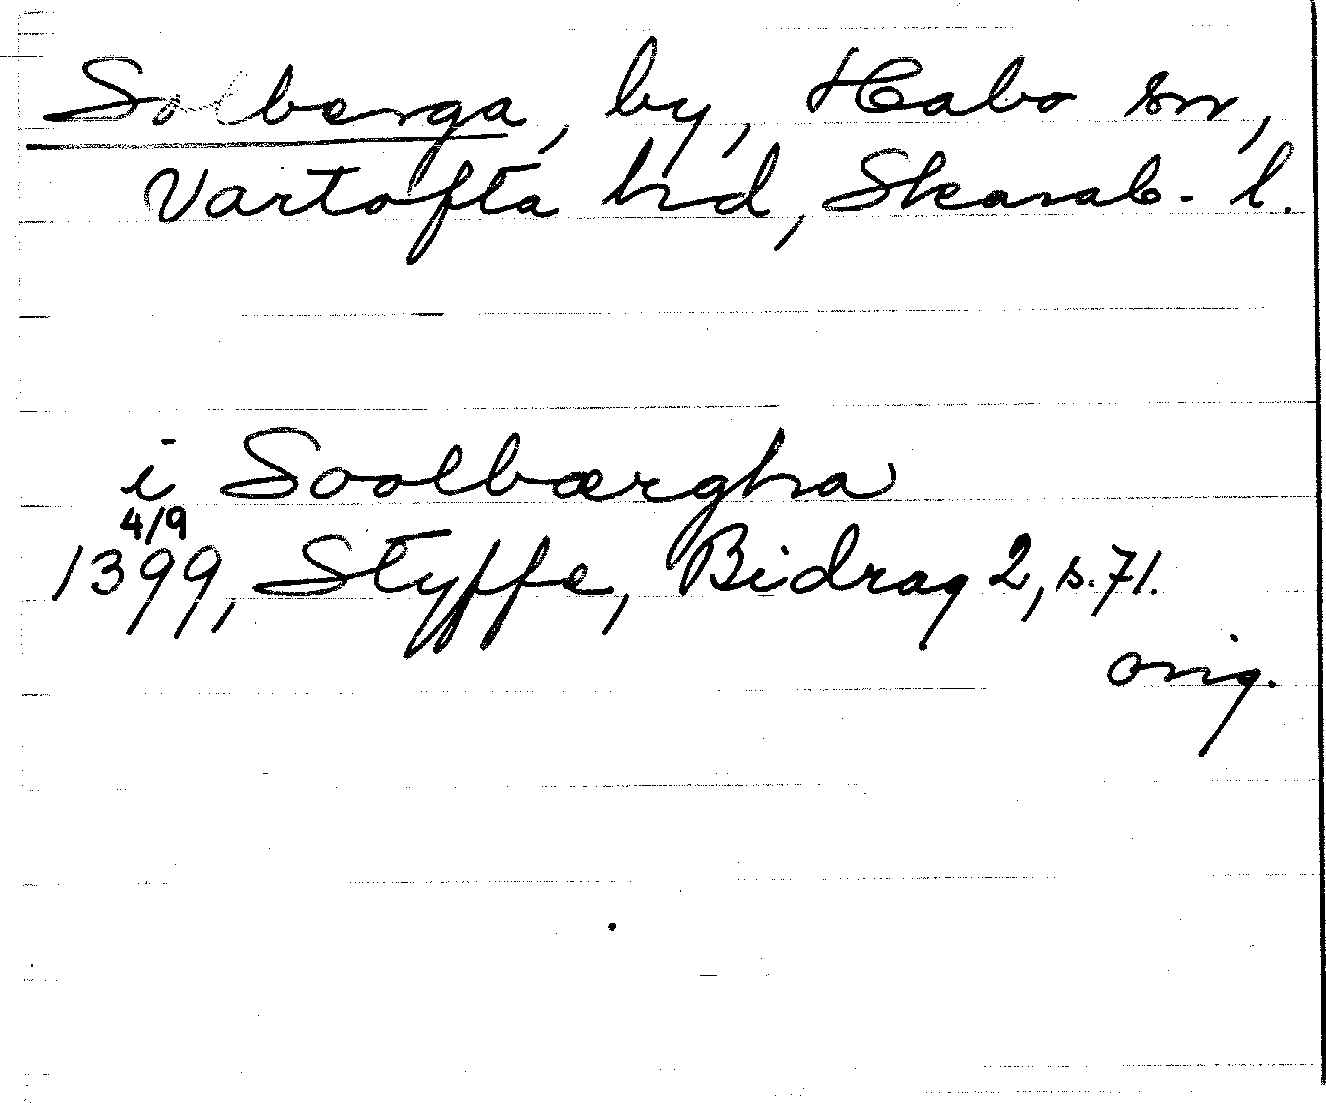 Solberga, by, Habo sn,
Vartofta hd, Skarab. l.
i Soolbærgha
4/9
1399, Styffe, Bidrag 2, s. 71.
orig.